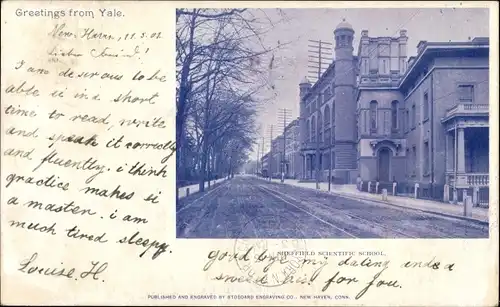 Greetings from Yale.
New Haven, 11.5.01
I am desirous to be
able ei ind short
time to read, write
and speak it correctly
and fluently. i think
practice makes ei
a master. i am
much tired sleepy.
Louise H.
SHEFFIELD SCIENTIFIC SCHOOL.
good bye my dating and a
sweed air for you.
PUBLISHED AND ENGRAVED BY STODDARD ENGRAVING CO., NEW HAVEN, CONN.